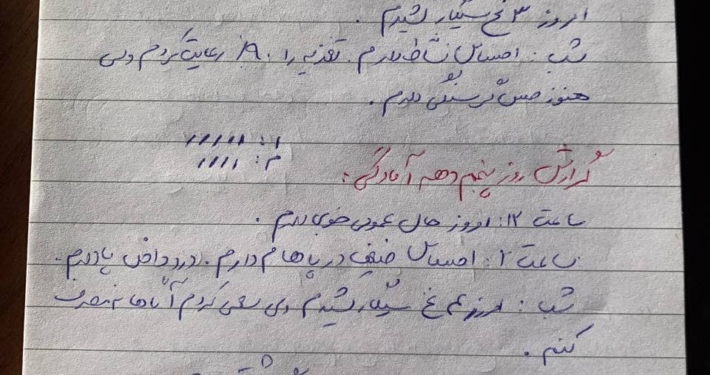 امروز ۳ نخ سیگار کشیدم .
شب : احساس نشاط دارم . تغذیه را ۸۰٪ رعایت کردم ولی
هنوز حس گرسنگی دارم .
ا : ١١١١١١
م : ١١١١
گزارش روز پنجم دهه آمادگی :
ساعت ۱۲ : امروز حال عمومی خوبی دارم .
ساعت ۲ : احساس ضعف در پاهام دارم . درد داخل پا دارم .
شب : امروز ۴ نخ سیگار کشیدم ولی سعی کردم آنها را نصف
کنم .